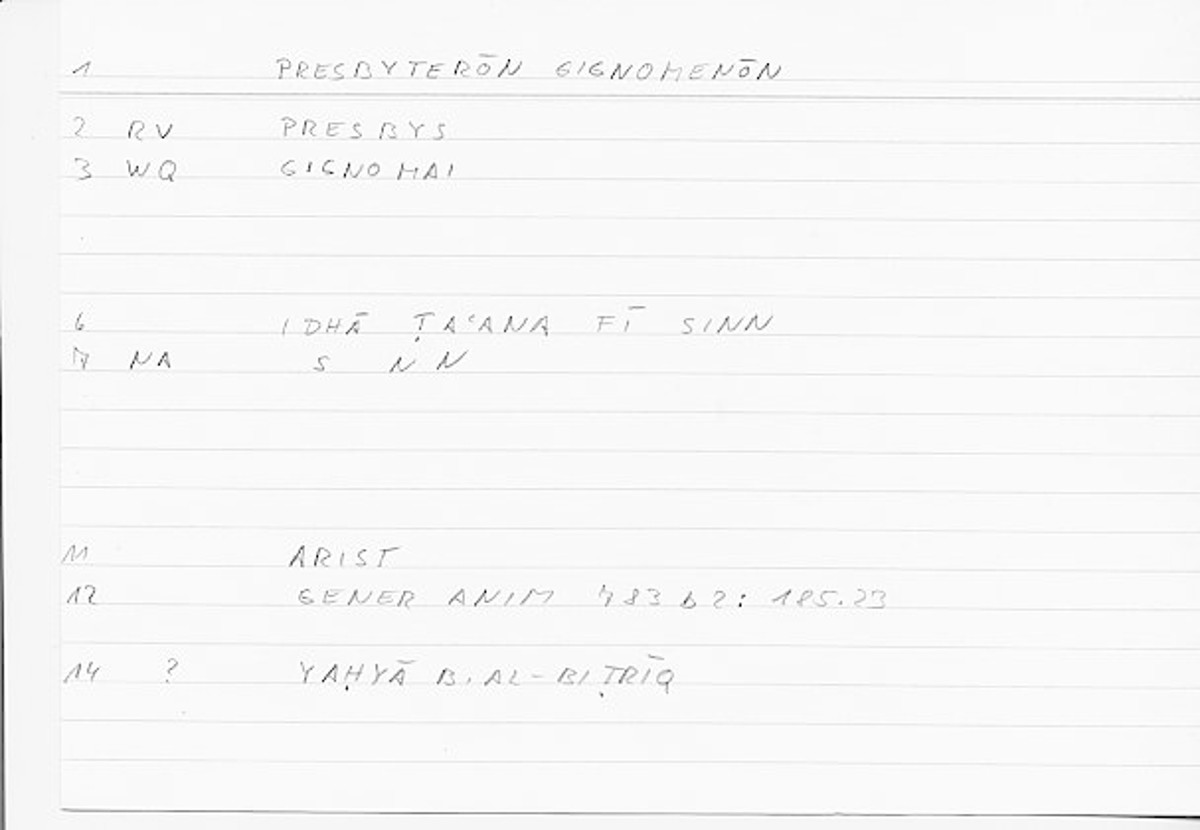 1 PRESBYTERŌN GIGNOMENŌN
2 RV PRESBYS
3 WQ GIGNOMAI
6 IDHĀ ṬAʿANA FĪ SINN
7 NA S N N
11 ARIST
12 GENER ANIM 783 b 2: 185.23
14 ? YAḤYĀ B. AL-BIṬRĪQ